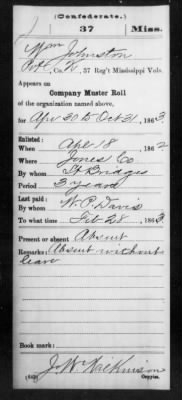 (Confederate.)
37 Miss.
Wm Johnston
Pvt, Co. K, 37 Reg't Mississippi Vols.
Appears on
Company Muster Roll
of the organization named above,
for Apr 30 to Oct 31, 1863.
Enlisted:
When Apl 18, 1862
Where Jones Co
By whom St Bridges
Period 3 years
Last paid:
By whom W. P. Davis
To what time Feb 28, 1863.
Present or absent Absent
Remarks: Absent without
leave
Book mark:
J. W. Wilkinson
(642) Copyist.